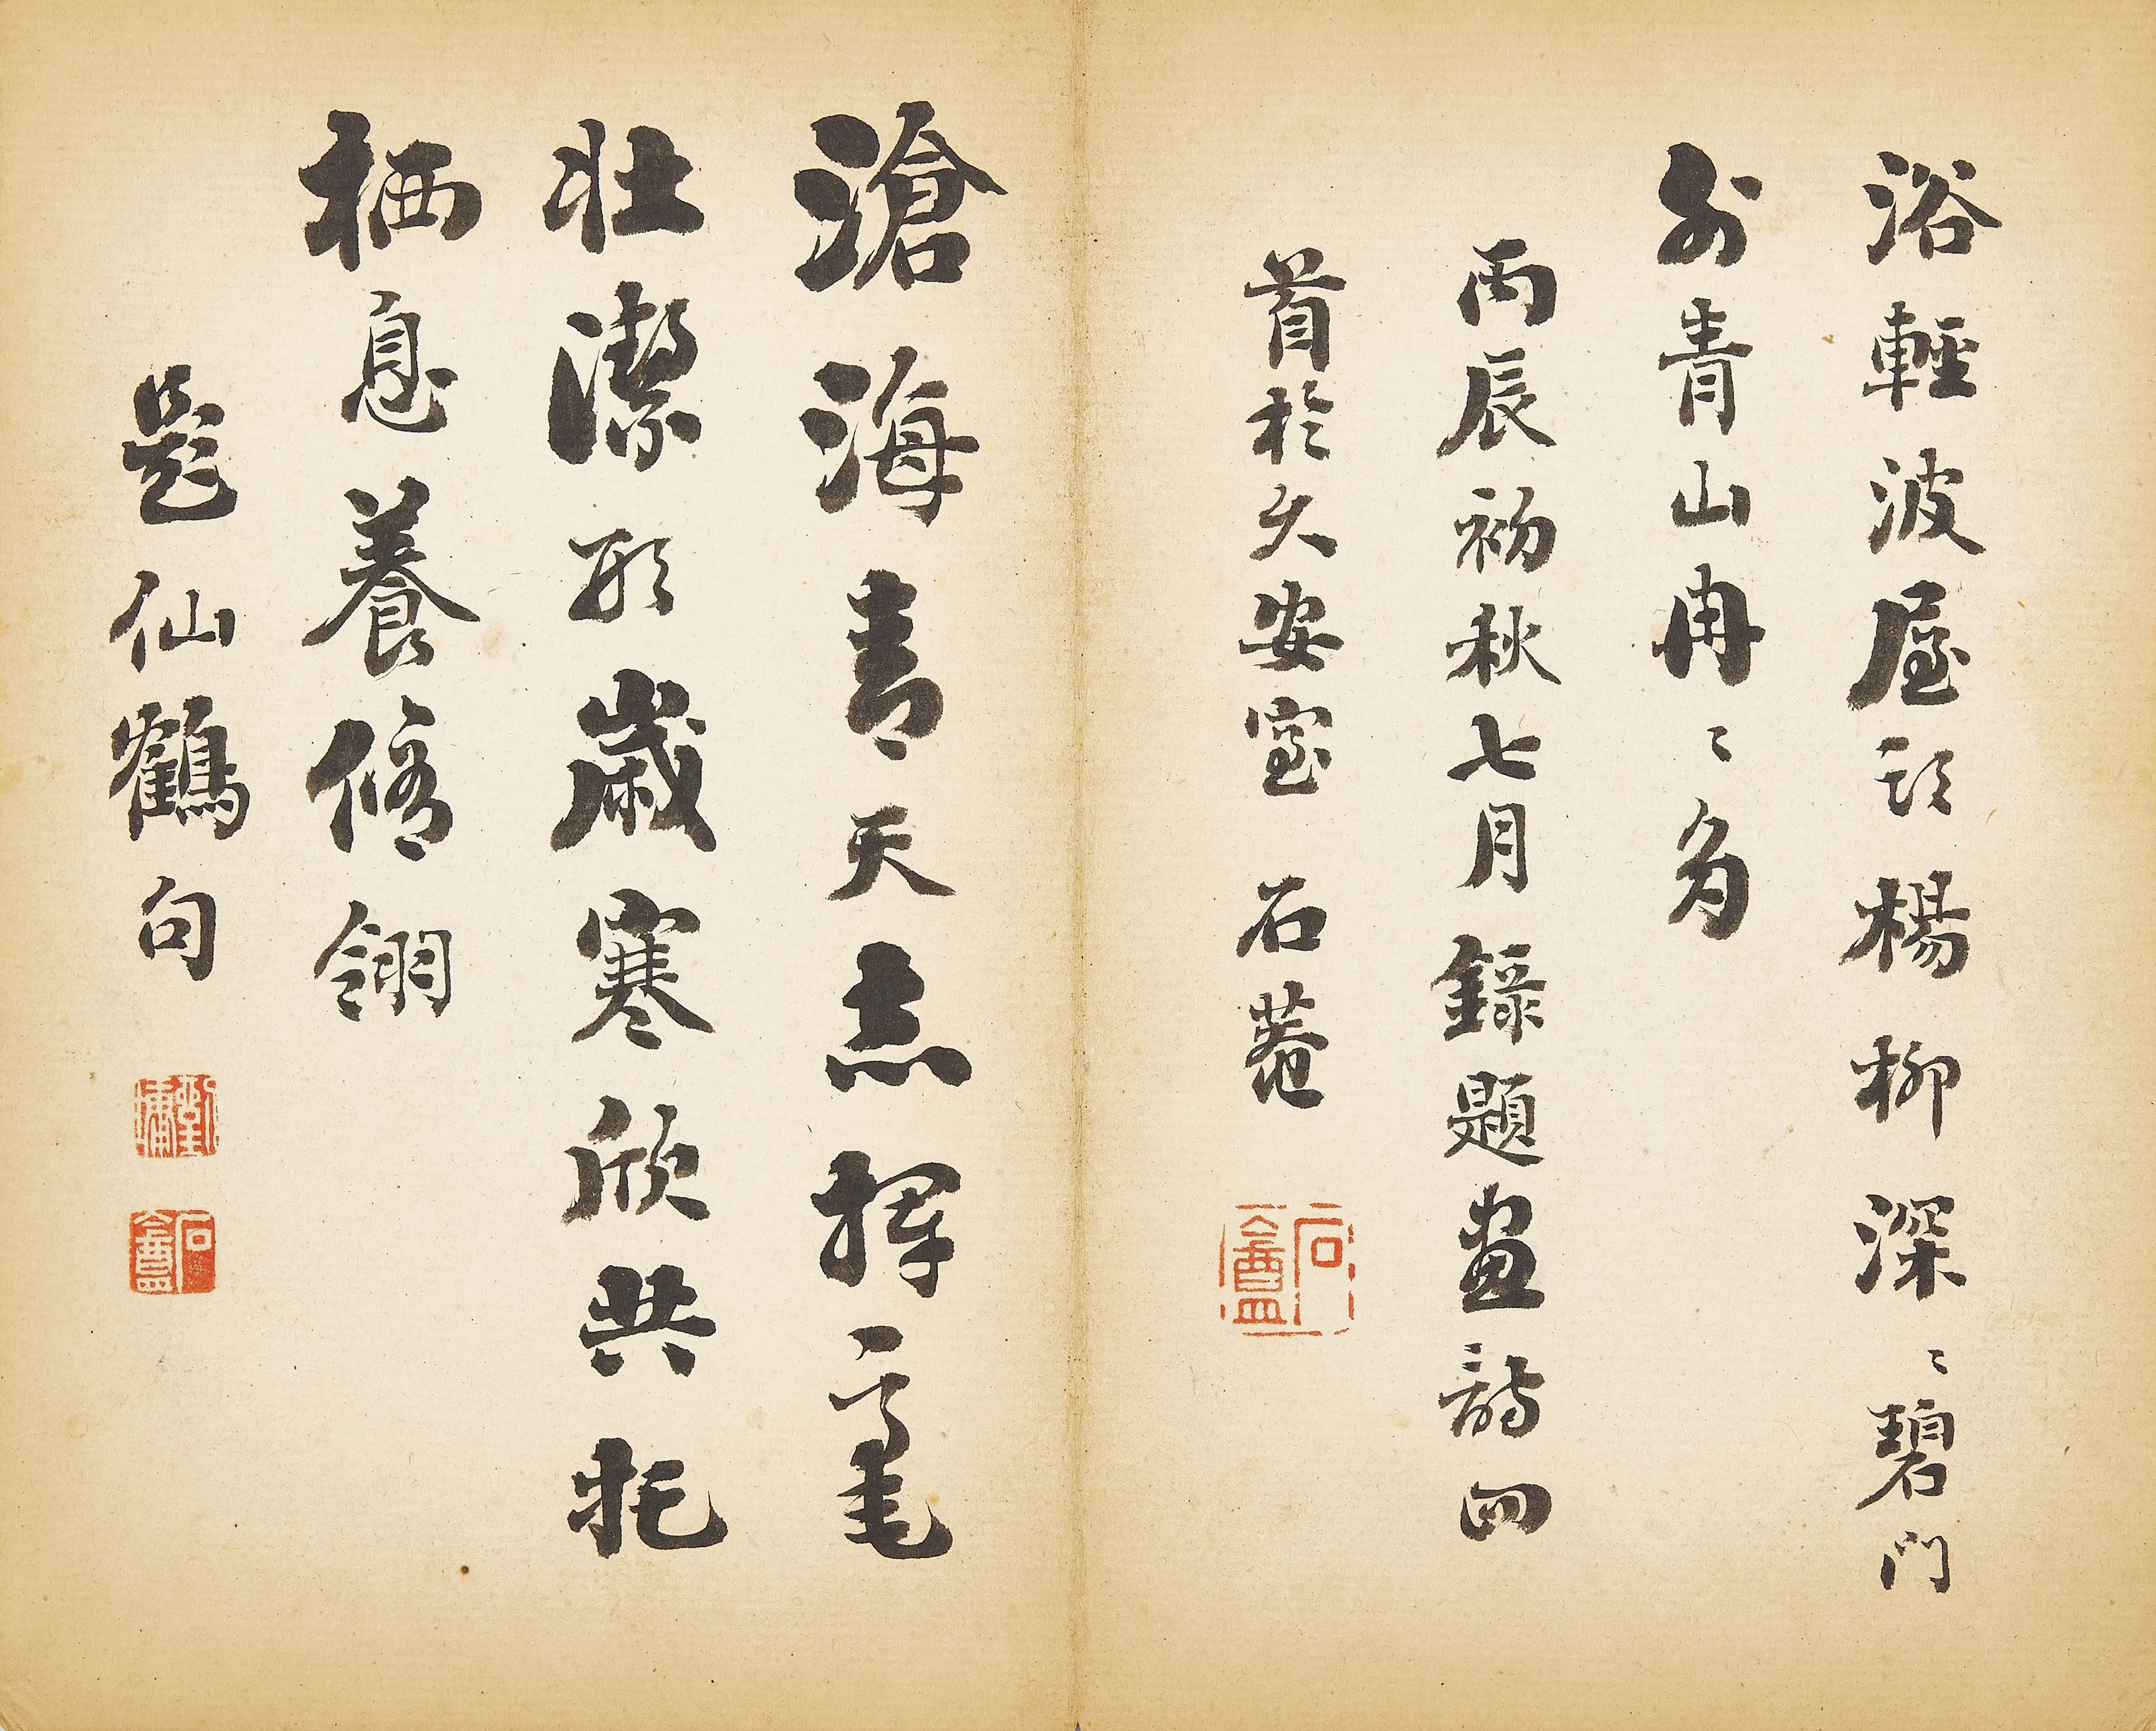 浴輕波屋頭楊柳深〻碧門
外青山冉〻多
丙辰初秋七月錄題畫詩四
首於久安室 石菴
石盦
滄海青天志揮高毛
壯潔形歲寒欣共托
栖息養脩翎
題仙鶴句
劉墉
石盦